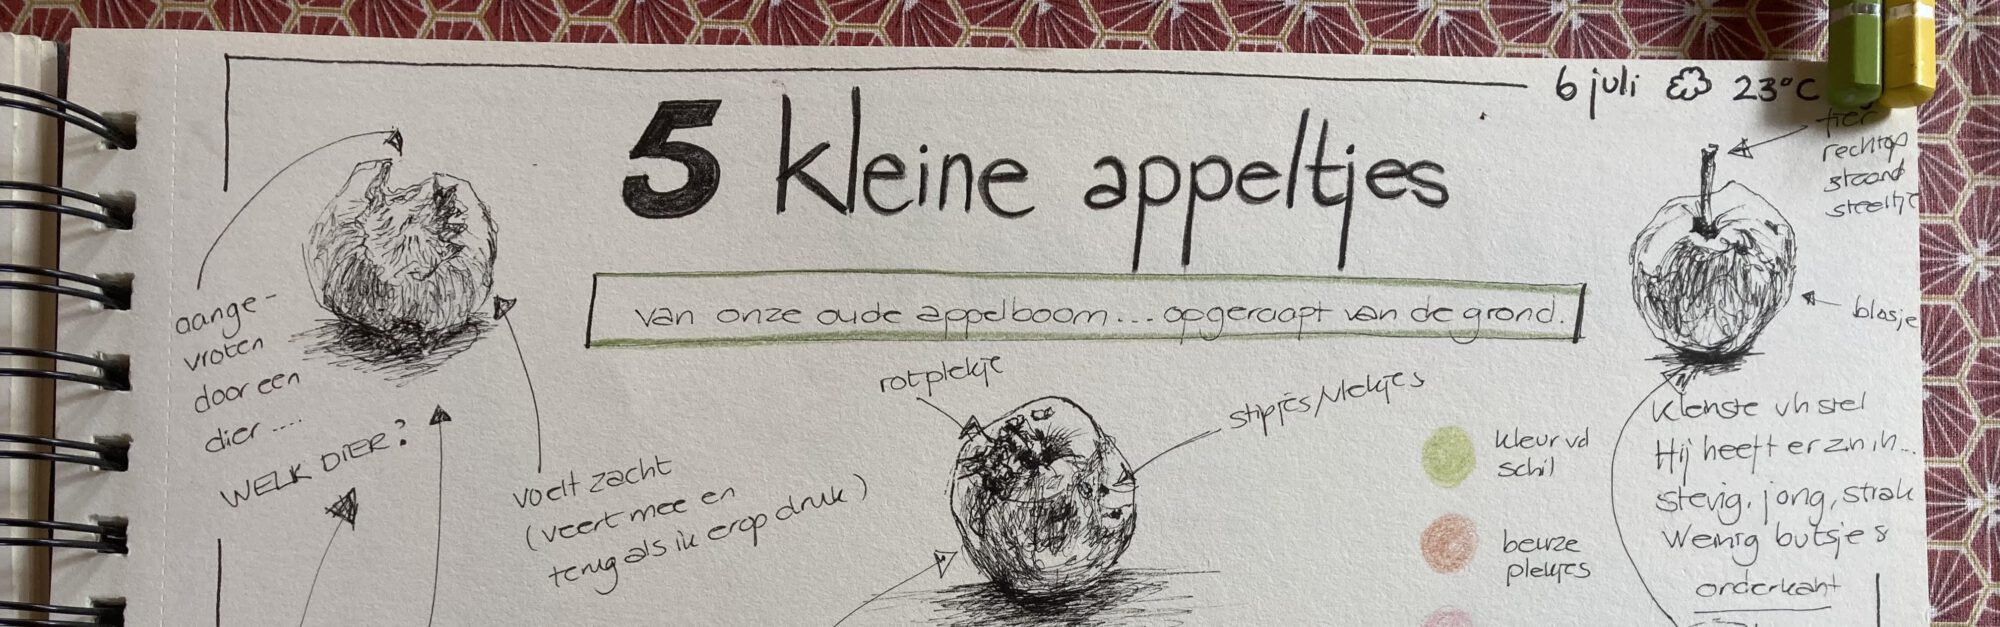 6 juli 23°C
5 kleine appeltjes
van onze oude appelboom... opgeraapt van de grond.
aange-
vroten
door een
dier....
WELK DIER?
voelt zacht
(veert mee en
terug als ik erop druk)
rotplekje
stipjes/vlekjes
kleur vd
schil
beurze
plekjes
fier
rechtop
staand
steeltje
blosje
Kleinste vh stel
Hij heeft er zin in...
stevig, jong, strak
Weinig butsjes
onderkant